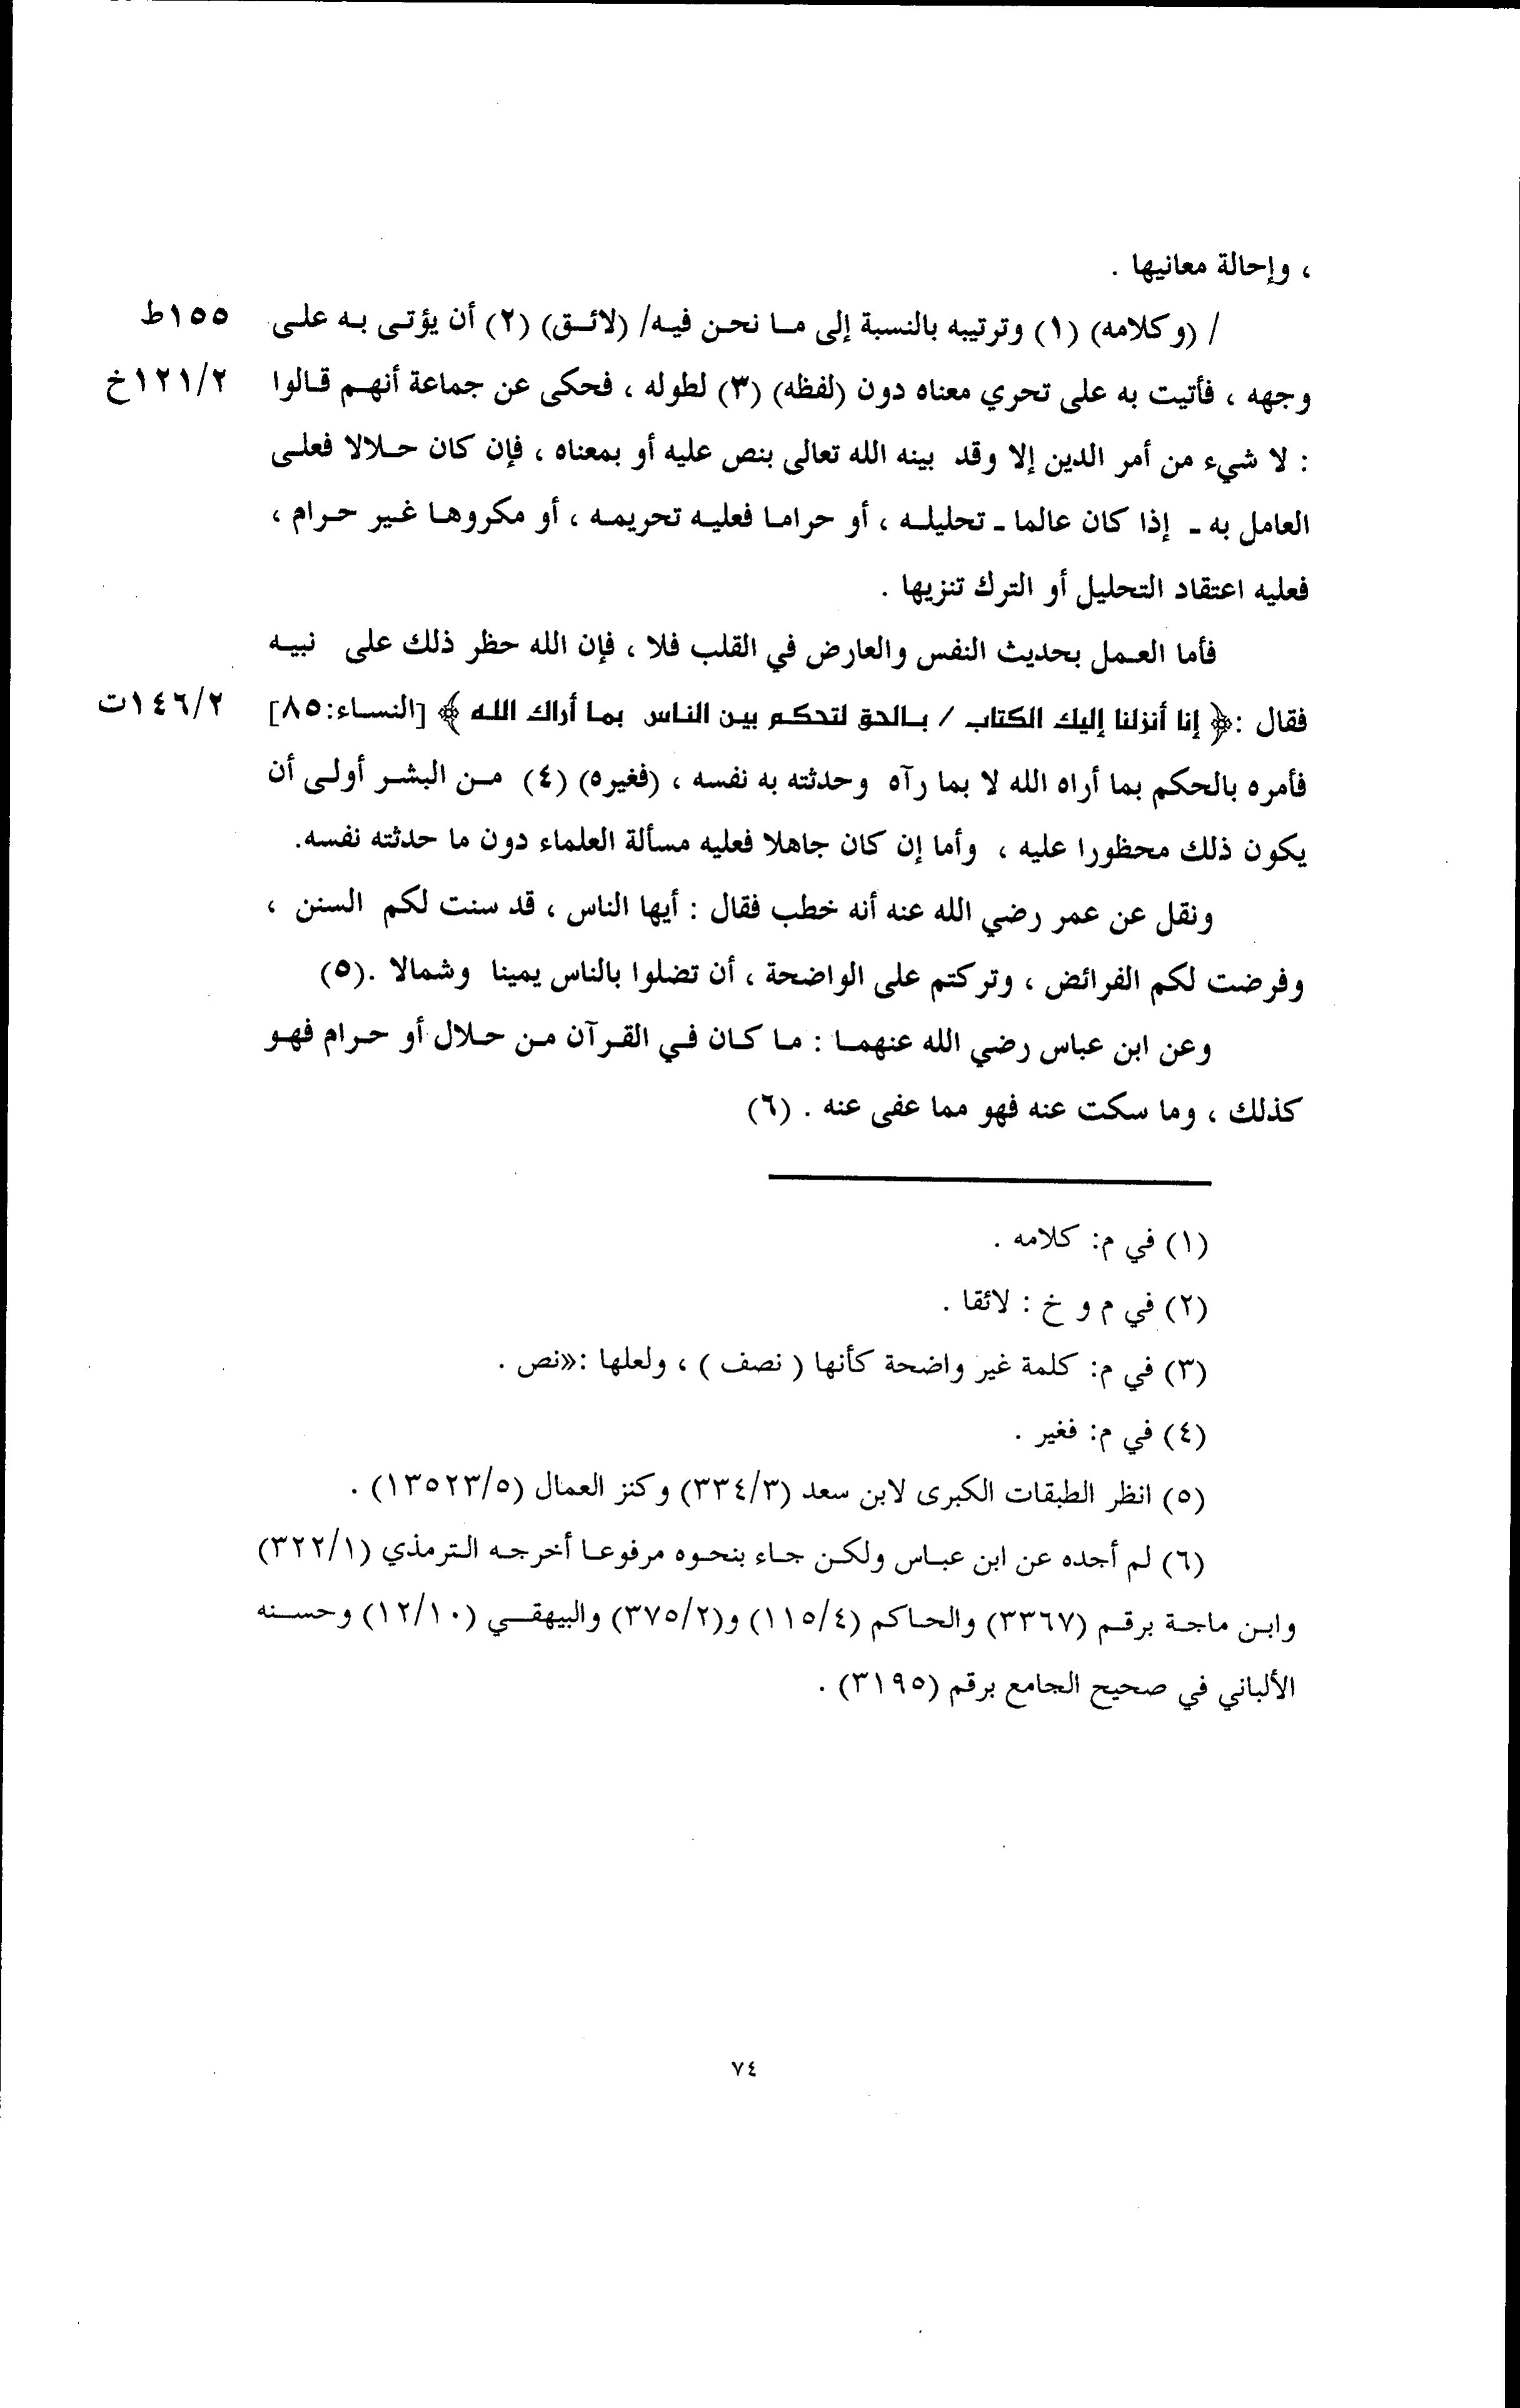 ، وإحالة معانيها .
/ (وكلامه) (١) وترتيبه بالنسبة إلى ما نحن فيه/ (لائق) (٢) أن يؤتى به على ١٥٥ط
وجهه ، فأتيت به على تحري معناه دون (لفظه) (٣) لطوله ، فحكى عن جماعة أنهم قالوا ١٢١/٢خ
: لا شيء من أمر الدين إلا وقد بينه الله تعالى بنص عليه أو بمعناه ، فإن كان حلالا فعلى
العامل به - إذا كان عالما - تحليله ، أو حراما فعليه تحريمه ، أو مكروها غير حرام ،
فعليه اعتقاد التحليل أو الترك تنزيها .
فأما العمل بحديث النفس والعارض في القلب فلا ، فإن الله حظر ذلك على نبيه
فقال :﴿ إنا أنزلنا إليك الكتاب / بالحق لتحكم بين الناس بما أراك الله ﴾ [النساء:٨٥] ١٤٦/٢ت
فأمره بالحكم بما أراه الله لا بما رآه وحدثته به نفسه ، (فغيره) (٤) من البشر أولى أن
يكون ذلك محظورا عليه ، وأما إن كان جاهلا فعليه مسألة العلماء دون ما حدثته نفسه.
ونقل عن عمر رضي الله عنه أنه خطب فقال : أيها الناس ، قد سنت لكم السنن ،
وفرضت لكم الفرائض ، وتركتم على الواضحة ، أن تضلوا بالناس يمينا وشمالا .(٥)
وعن ابن عباس رضي الله عنهما : ما كان في القرآن من حلال أو حرام فهو
كذلك ، وما سكت عنه فهو مما عفى عنه . (٦)
(١) في م: كلامه .
(٢) في م و خ : لائقا .
(٣) في م: كلمة غير واضحة كأنها ( نصف ) ، ولعلها :«نص .
(٤) في م: فغير .
(٥) انظر الطبقات الكبرى لابن سعد (٣٣٤/٣) وكنز العمال (١٣٥٢٣/٥) .
(٦) لم أجده عن ابن عباس ولكن جاء بنحوه مرفوعا أخرجه الترمذي (٣٢٢/١)
وابن ماجة برقم (٣٣٦٧) والحاكم (١١٥/٤) و(٣٧٥/٢) والبيهقي (١٢/١٠) وحسنه
الألباني في صحيح الجامع برقم (٣١٩٥) .
٧٤